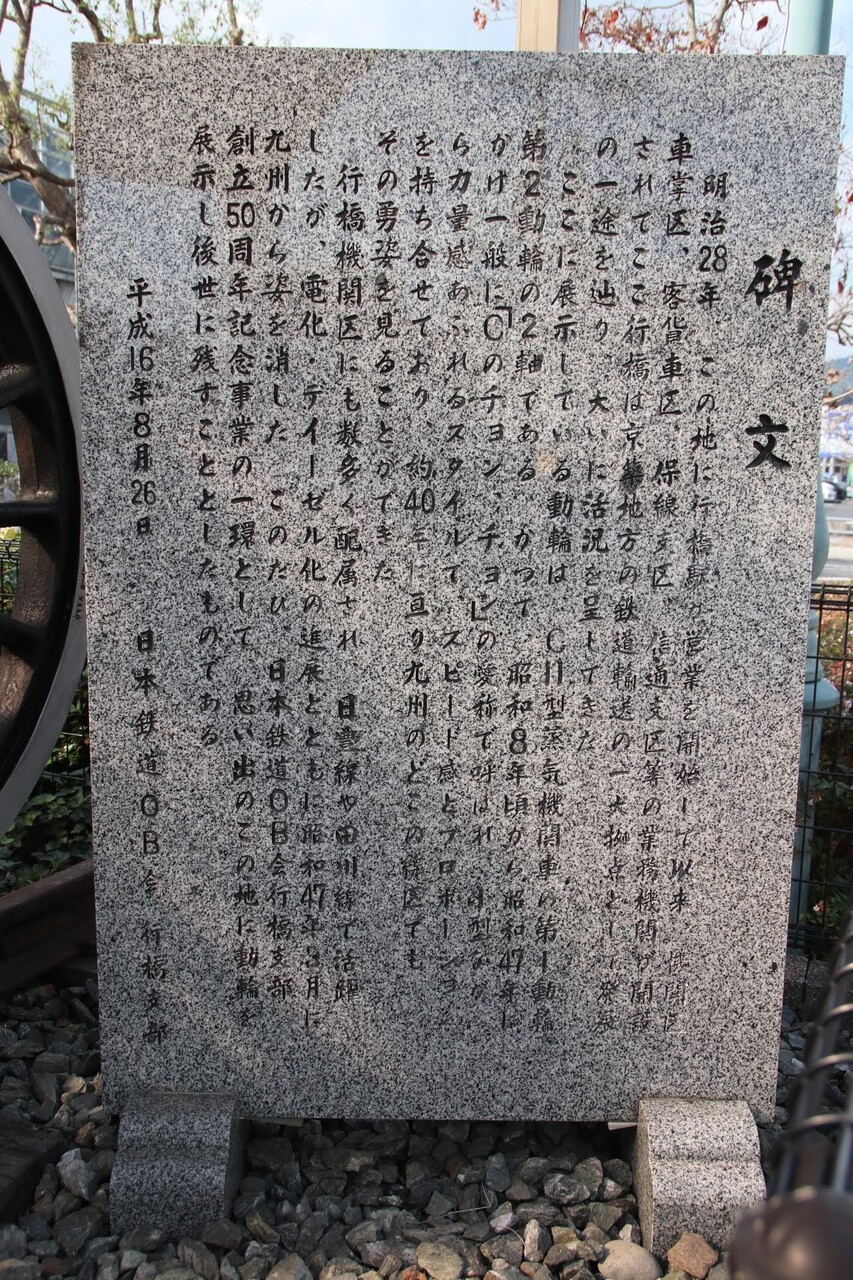 碑文
明治28年、この地に行橋駅が営業を開始して以来、機関区
車掌区、客貨車区、保線支区、信通支区等の業務機関が開設
されてここ行橋は京築地方の鉄道輸送の一大拠点として発展
の一途を辿り、大いに活況を呈してきた。
ここに展示している動輪は、C11型蒸気機関車の第1動輪
第2動輪の2軸である。かつて、昭和8年頃から昭和47年に
かけ一般に「Cのチョンチョン」の愛称で呼ばれ、小型なが
ら力量感あふれるスタイルで、スピード感とプロポーション
を持ち合せており、約40年に亘り九州のどこの線区でも
その勇姿を見ることができた。
行橋機関区にも数多く配属され、日豊線や田川線で活躍
したが、電化・ディーゼル化の進展とともに昭和47年3月に
九州から姿を消した。このたび、日本鉄道OB会行橋支部
創立50周年記念事業の一環として、思い出のこの地に動輪を
展示し後世に残すこととしたものである。
平成16年8月26日 日本鉄道OB会 行橋支部